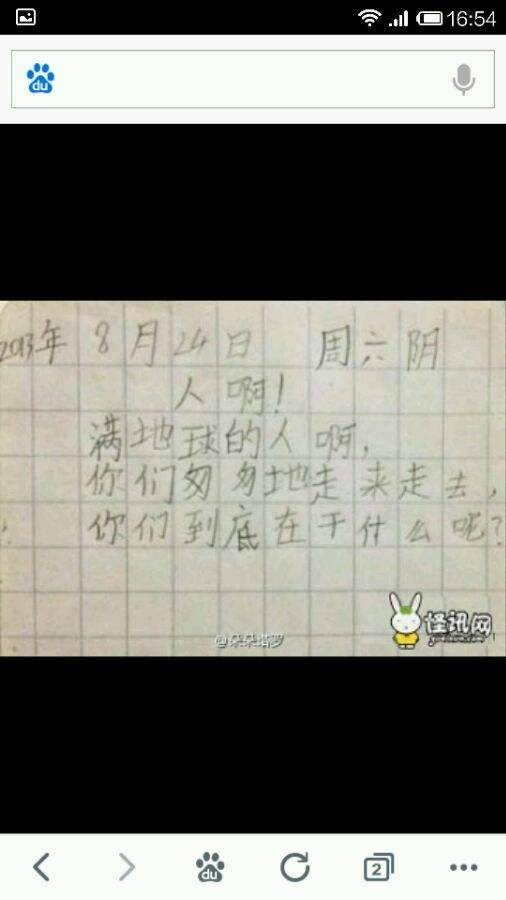 16:54
du
2013年 8月24日 周六 阴
人啊!
满地球的人啊,
你们匆匆地走来走去,
你们到底在干什么呢?
@朵朵塔罗
怪讯网
du
2